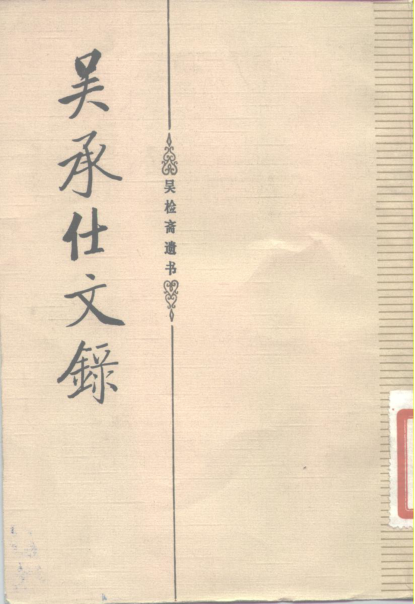 吴承仕文錄
吴检斋遗书